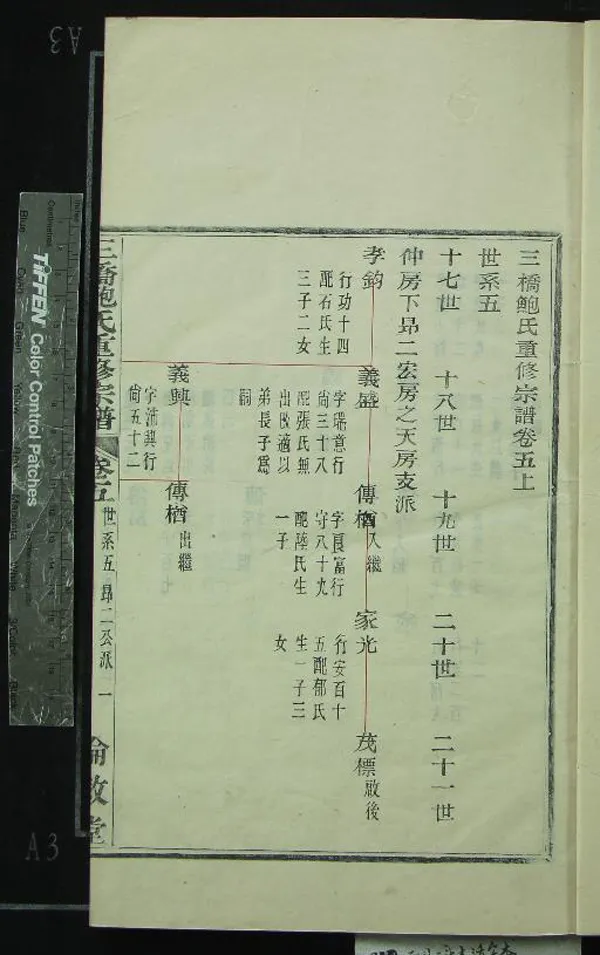 三橋鮑氏重修宗譜卷五上
世系五
十七世 十八世 十九世 二十世 二十一世
仲房下昂二宏房之天房支派
孝鈞
行功十四
配石氏生
三子二女
義盛
字瑞意行
尚三十八
配張氏無
出故適以
弟長子爲
嗣
傳楢入繼
字良富行
守八十九
配陸氏生
一子
家光
行安百十
五配郁氏
生一子三
女
茂標啟後
義興
字沛興行
尚五十二
傳楢出繼
三橋鮑氏重修宗譜
卷五
世系五 昂二公派 一
倫敘堂
TIFFEN Color Control Patches
Blue
A3
A3